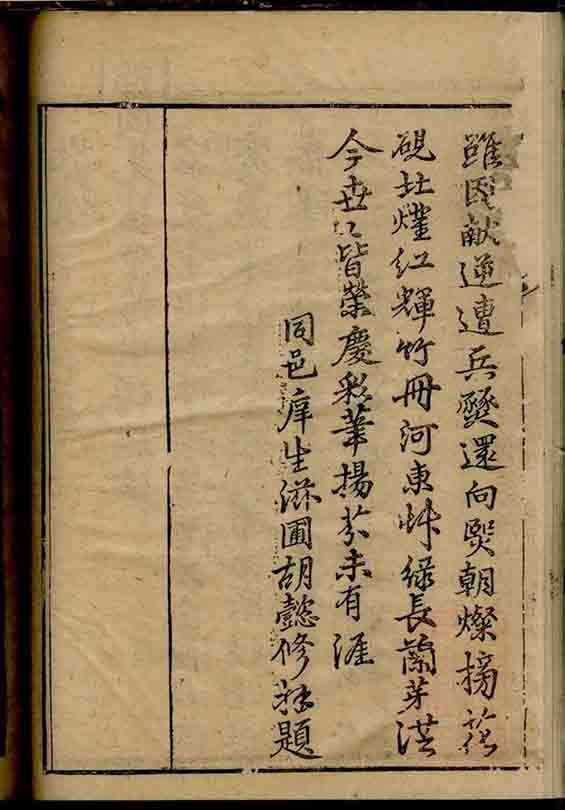 雖因獻逆遭兵燹還向熙朝燦摛花
硯北燿紅輝竹冊河東艸綠長蘭芽洪
今世〻皆榮慶彩華揚芬未有涯
同邑庠生滋圃胡懿修拜題